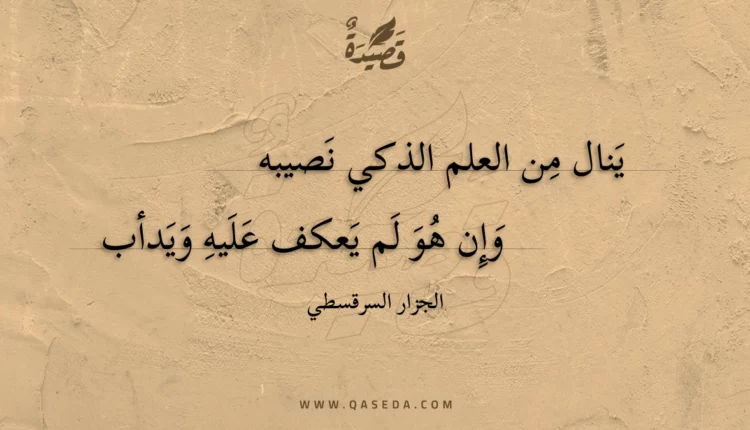 قَصِيدَةٌ
يَنال مِن العلم الذكي نَصيبه
وَإِن هُوَ لَم يَعكف عَلَيهِ وَيَدأب
الجزار السرقسطي
WWW.QASEDA.COM